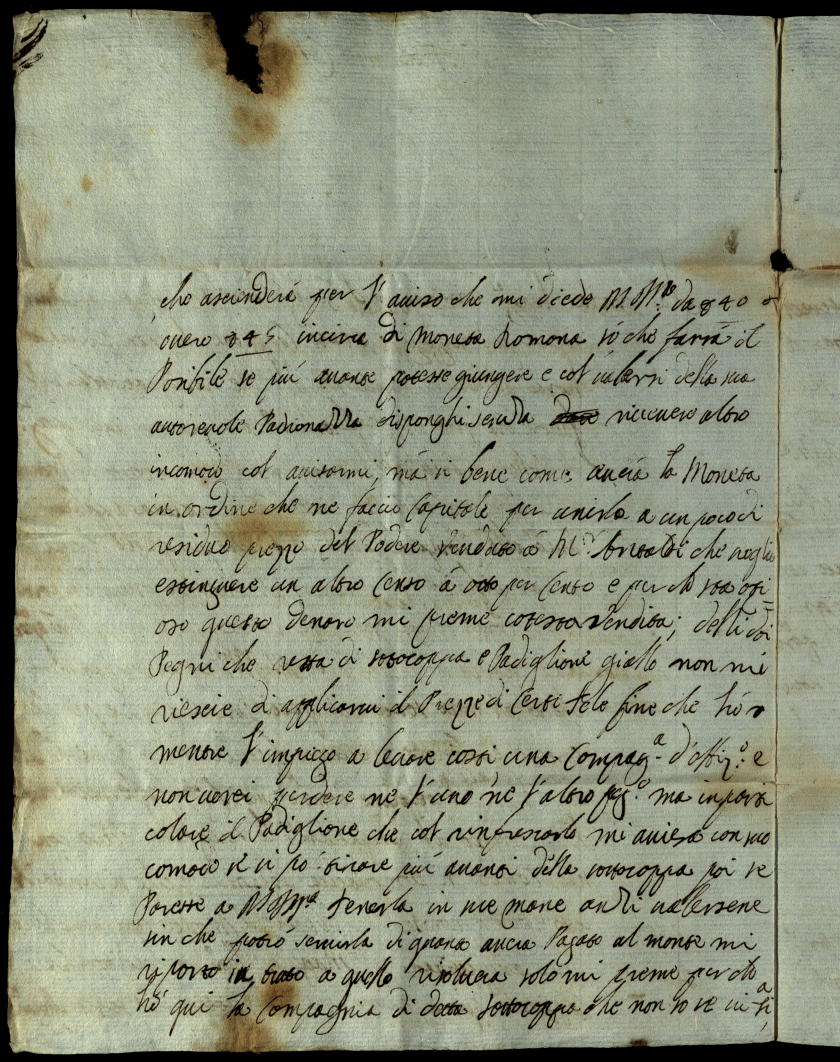 che ascenderà per l'auiso che mi diede M.M.re da 840 o
uuero 845 incirca di Moneta Romona sò che farrà il
Posibile se più auante potesse giungere e col ualersi della sua
autoreuole Padronanza disponghi senza riceuere altro
incomodo col auisarmi, mà si bene come aurà la Moneta
in ordine che ne faccio Capitale per unirla a un poco di
residuo prezzo del Podere Venduto à M.r che uoglio
estinguere un altro Censo à otto per Cento e perche sta ozi
oso questo denaro mi preme cotesta Vendita; delli doi
Pegni che resta di sottocoppa e Padiglione giallo non mi
riescie di applicarui il Prezzo di Certe Tele fine che hò
mentre l'impiego a leuare costi una Compag.a d'offiz.o e
non uorei perdere ne l'uno ne l'altro peg.o ma in parti
colare il Padiglione che col rinfrescarlo mi auisa con suo
comodo se si pò tirare più auanti della sottocoppa poi se
Paresse a M.M.ra tenerla in sue mane anzi ualersene
sin che potrò seruirla di quanto aurà Pagato al monte mi
riporto in tutto a quello risoluerà solo mi preme perche
hò qui la Compagnia di detta sottocoppa che non sò se ui si